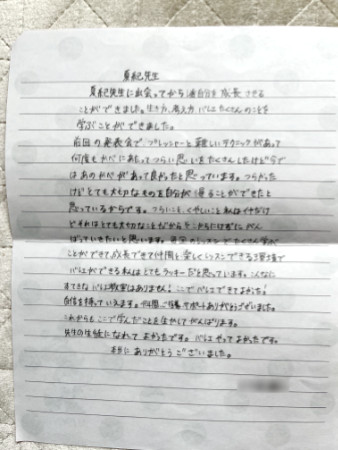 真紀先生
真紀先生に出会ってから自分を成長させる
ことができました。生き方、考え方、バレエたくさんのことを
学ぶことができました。
前回の発表会で、プレッシャーと難しいテクニックがあって
何度もカベにあたってつらい思いをたくさんしたけど今で
はあのカベがあって良かったと思っています。つらかった
けどとても大切なものを自分が得ることができたと
思っているからです。つらいこと、くやしいこと私はイヤだけ
どそれはとても大切なことだから
ばっていきたいと思います。レッスンでたくさん学ぶ
ことができて、成長できて仲間と楽しくレッスンできる環境で
バレエができる私はとてもラッキーだと思っています。こんなに
すてきなバレエ教室はありません!ここでバレエできてよかった!
自信を持っていえます。ありがとうございました。
これからもここで学んだことを生かしてがんばります。
先生の生徒になれてよかったです。バレエやっててよかったです。
本当にありがとうございました。